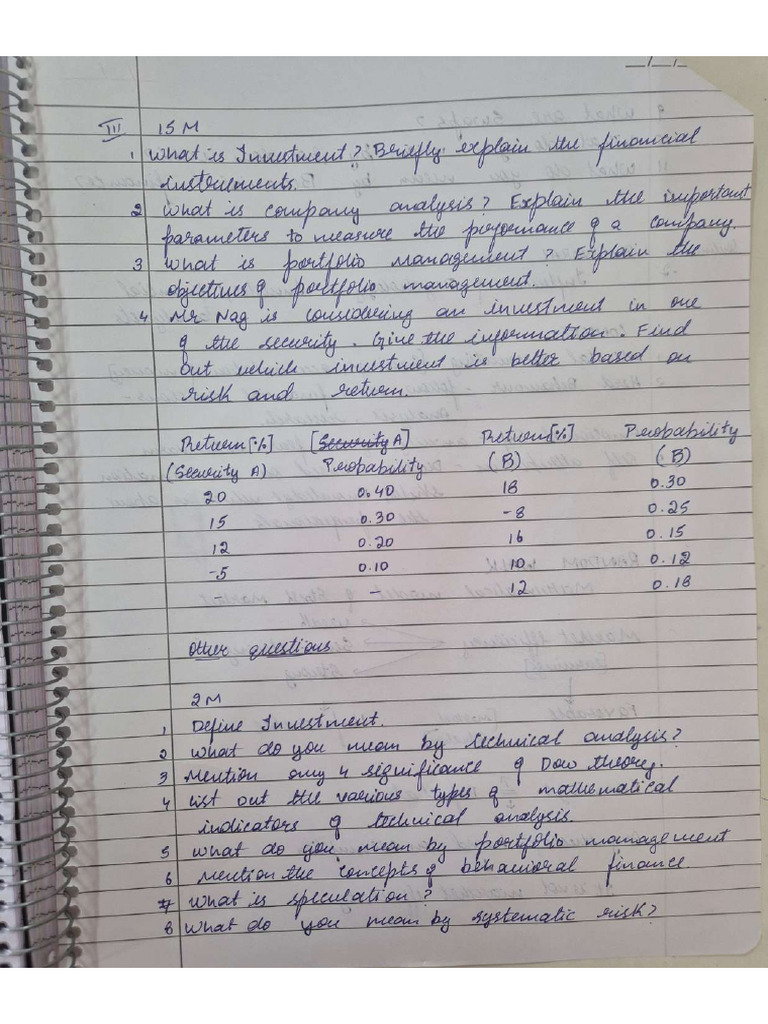 III 15 M
1 What is Investment? Briefly explain the financial
instruments.
2 What is company analysis? Explain the important
parameters to measure the performance of a company.
3 What is portfolio management? Explain the
objectives of portfolio management.
4 Mr Nag is considering an investment in one
of the security. Give the information. Find
out which investment is better based on
risk and return.
Return[%] [Security A] Return[%] Probability
(Security A) Probability (B) (B)
20 0.40 18 0.30
15 0.30 -8 0.25
12 0.20 16 0.15
-5 0.10 10 0.12
- - 12 0.18
Other questions
2 M
1 Define Investment.
2 What do you mean by technical analysis?
3 Mention any 4 significance of Dow theory.
4 List out the various types of mathematical
indicators of technical analysis.
5 What do you mean by portfolio management
6 Mention the concepts of behavioral finance.
7 What is speculation?
8 What do you mean by systematic risk?